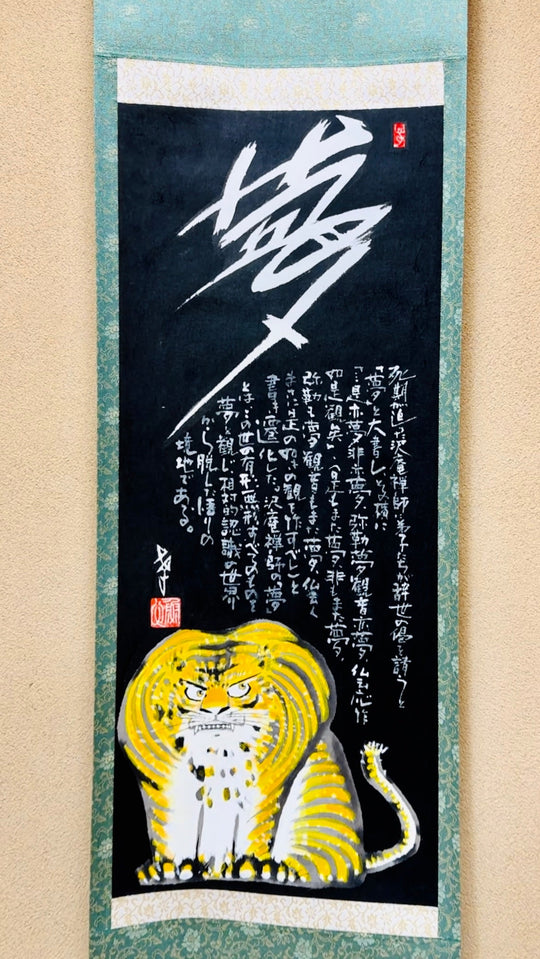 夢
死期が迫った沢庵禅師弟子たちが辞世の偈を請うと
「夢」と大書しその横に
「…是亦夢、非亦夢、弥勒夢観音亦夢、仏云応作
如是観矣」(是もまた夢、非もまた夢、
弥勒も夢、観音もまた夢、仏云く
まさに是の如きの観を作すべし)と
書き遷化した。沢庵禅師の夢
とはこの世の有形無形すべてのものを
夢と観じ相対的認識の世界
から脱した悟りの
境地である。